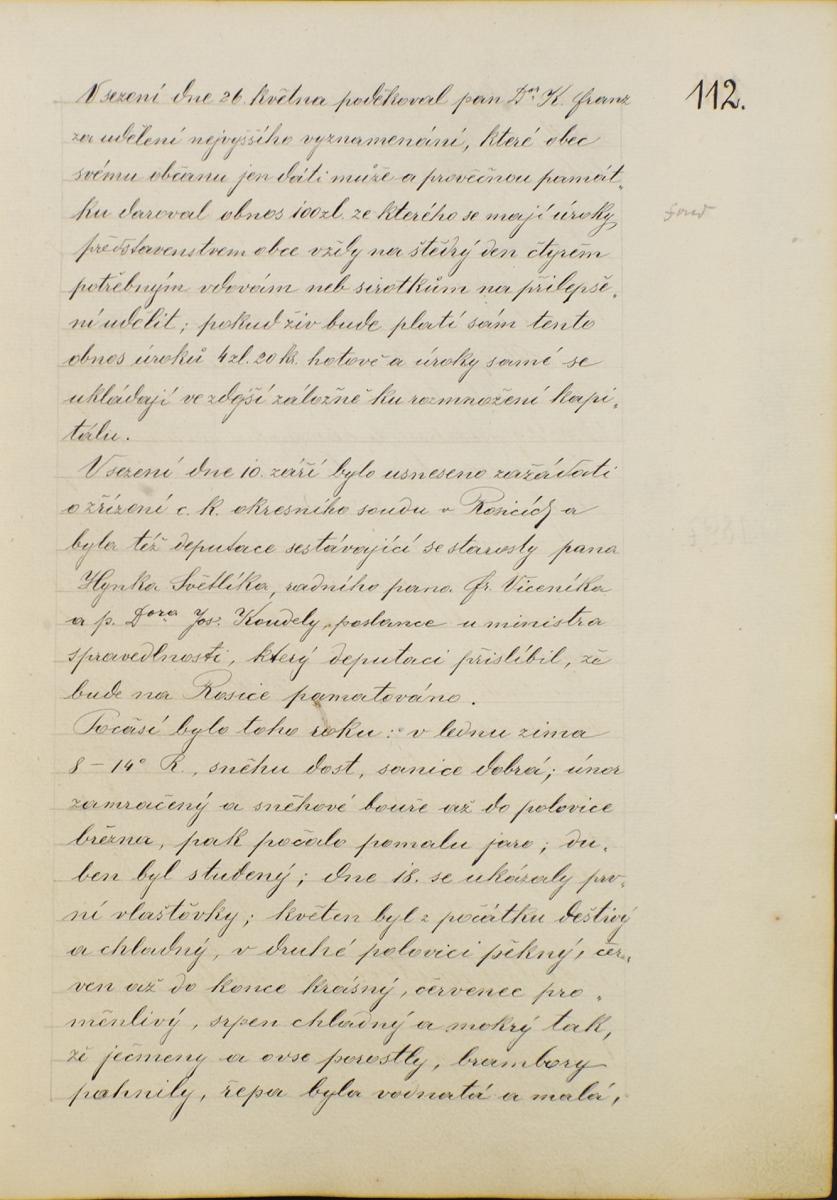 112.
V sezení dne 26. května poděkoval pan Dr. K. Franz
za udělení nejvyššího vyznamenání, které obec
svému občanu jen dáti může a pro věčnou památ„
ku daroval obnos 100 zl. ze kterého se mají úroky
představenstvem obce vždy na štědrý den čtyřem
potřebným vdovám neb sirotkům na přilepše„
ní udělit; pokud živ bude platí sám tento
obnos úroků 4 zl. 20 kr. hotově a úroky samé se
ukládají ve zdejší záložně ku rozmnožení kapi„
tálu.
V sezení dne 10. září bylo usneseno zažádati
o zřízení c. k. okresního soudu v Rosicích a
byla též deputace sestávající se starosty pana
Hynka Světlíka, radního pana Fr. Vičeníka
a p. Dora Jos. Koudely, poslance u ministra
spravedlnosti, který deputaci přislíbil, že
bude na Rosice pamatováno.
Počasí bylo toho roku: v lednu zima
8 – 14° R., sněhu dost, sanice dobrá; únor
zamračený a sněhové bouře až do polovice
března, pak počalo pomalu jaro; du„
ben byl studený; dne 18. se ukázaly prv„
ní vlaštovky; květen byl z počátku deštivý
a chladný, v druhé polovici pěkný, čer„
ven až do konce krásný, červenec pro„
měnlivý, srpen chladný a mokrý tak,
že ječmeny a ovse porostly, brambory
pahnily, řepa byla vodnatá a malá,